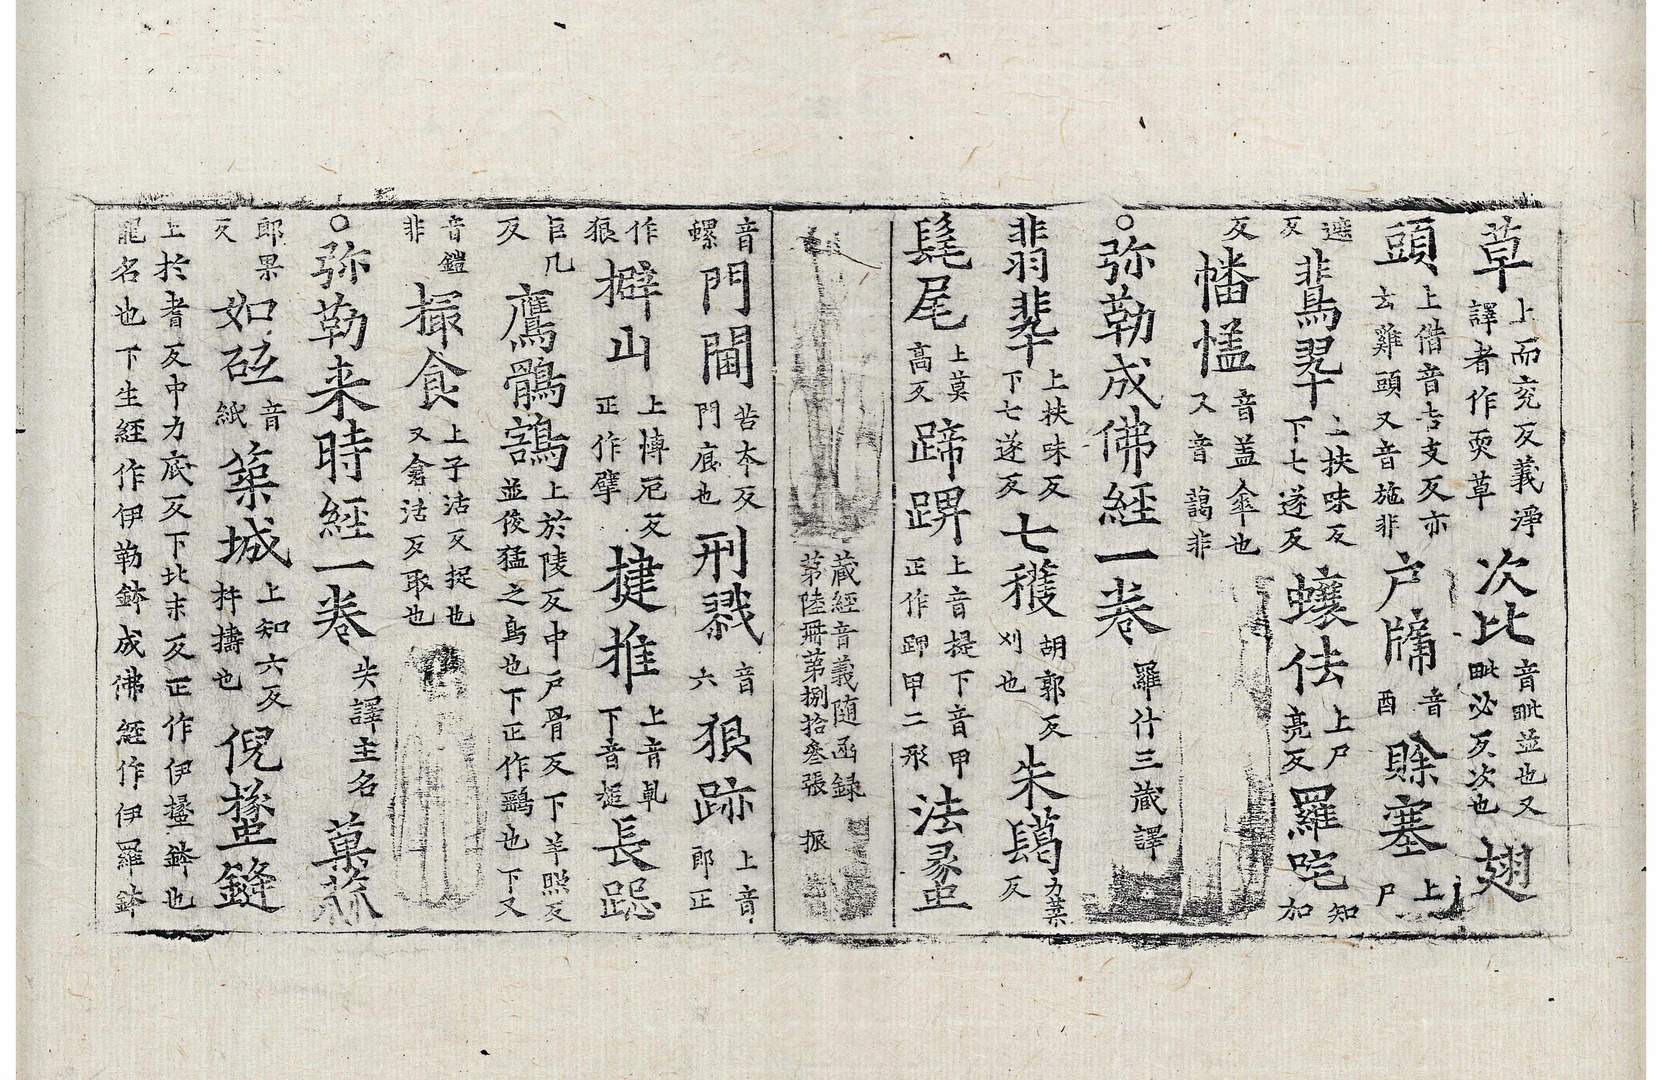 草上而充反義淨譯者作耎草次比音毗並也又毗必反次也翅
頭上借音吉支反亦云雞頭又音施非户牖音酉賖塞上尸
遮反翡翠上扶味反下七遂反蠰佉上尸亮反羅咤知加
反幡㡋音盖傘也又音藹非
○弥勒成佛經一卷羅什三藏譯
翡翠上扶味反下七遂反七穫胡郭反刈也朱鬣力葉反
髦尾上莫高反蹄踋上音提下音甲正作䟮甲二形法蠡
藏經音義随函録
第陸册第捌拾叄張 振
音螺門閫苦本反門㾗也刑戮音六狼跡上音郎正
作狼擗山上愽厄反正作擘揵推上音乹下音搥長跽
巨几反鷹鶻鵠上於陵反中戸骨反下羊照反並俊猛之鳥也下正作鷂也下又
音鎧非撮食上子活反捉也又倉活反取也
○弥勒来時經一卷失譯主名菓蓏
郎果反如砥音紙築城上知六反杵擣也倪𧎾鏠
上於耆反中力底反下北末反正作伊𧎾鉢也龍名也下生經作伊勒鉢成佛經作伊羅鉢